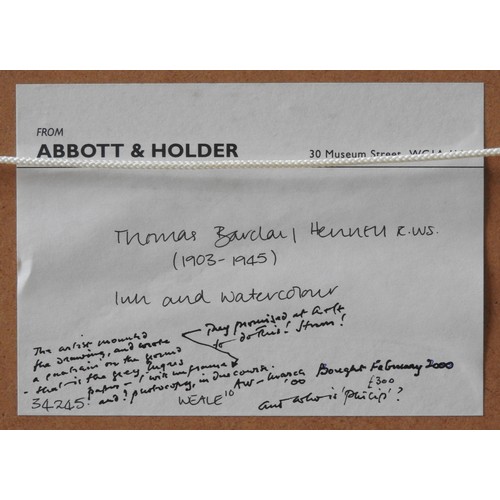 FROM
ABBOTT & HOLDER
30 Museum Street, WC1A
Thomas Barclay Hennell R.WS.
(1903-1945)
Ink and watercolour
The artist mounted
the drawing, and wrote
a quatrain on the ground
- that is the grey Ingres
paper -, I will unframe
and photocopy, in due course.
They promised at
to do this!
Bought February 2000
£300
34245
WEALE
And who is 'Philip'?